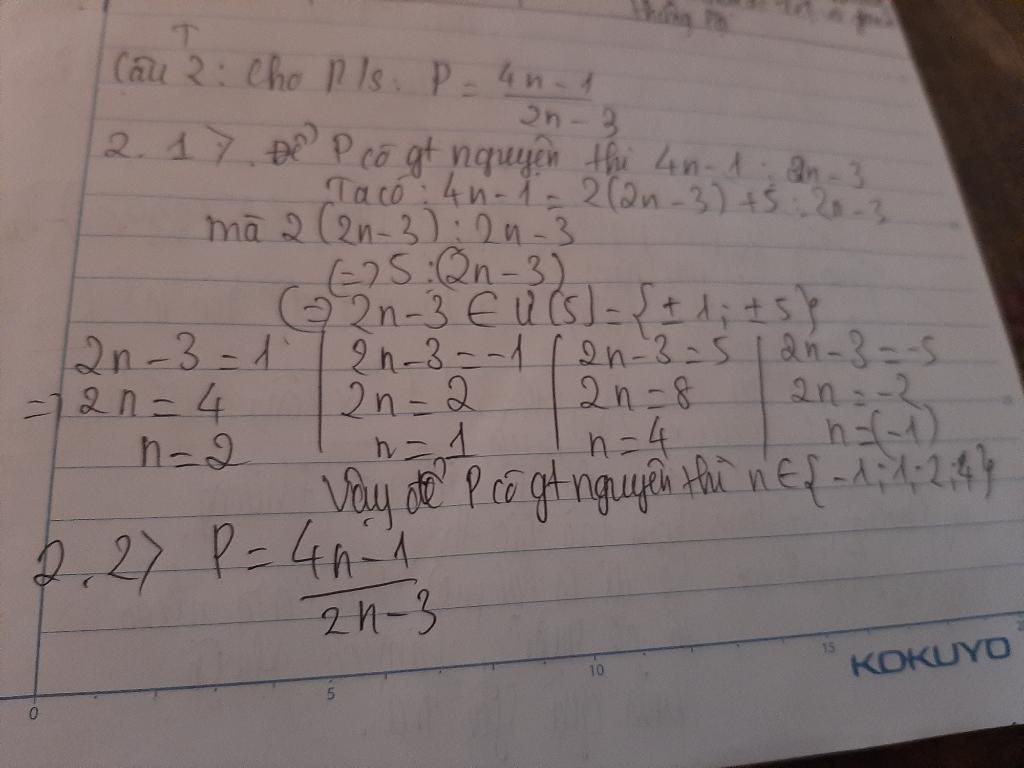 Câu 2: Cho P/s: P = 4n-1 / 2n-3
2.1> Để P có gt nguyên thì 4n-1 ⋮ 2n-3
Ta có: 4n-1 = 2(2n-3)+5 ⋮ 2n-3
mà 2(2n-3) ⋮ 2n-3
(=> 5 ⋮ (2n-3)
(=> 2n-3 ∈ Ư(5) = {±1; ±5}
2n-3=1 | 2n-3=-1 | 2n-3=5 | 2n-3=-5
=> 2n=4 | 2n=2 | 2n=8 | 2n=-2
n=2 | n=1 | n=4 | n=(-1)
Vậy để P có gt nguyên thì n∈{-1;1;2;4}
2.2> P = 4n-1 / 2n-3
0 5 10 15
KOKUYO